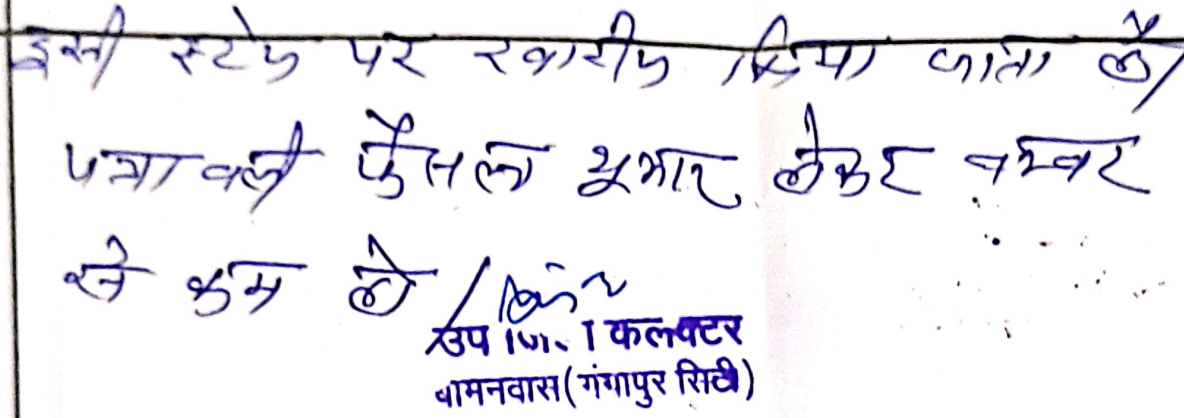 इसी स्टेज पर खारीज किया जाता है।
पत्रावली फैसल शुमार होकर नम्बर
से कम हो।
उप जिला कलक्टर
बामनवास (गंगापुर सिटी)